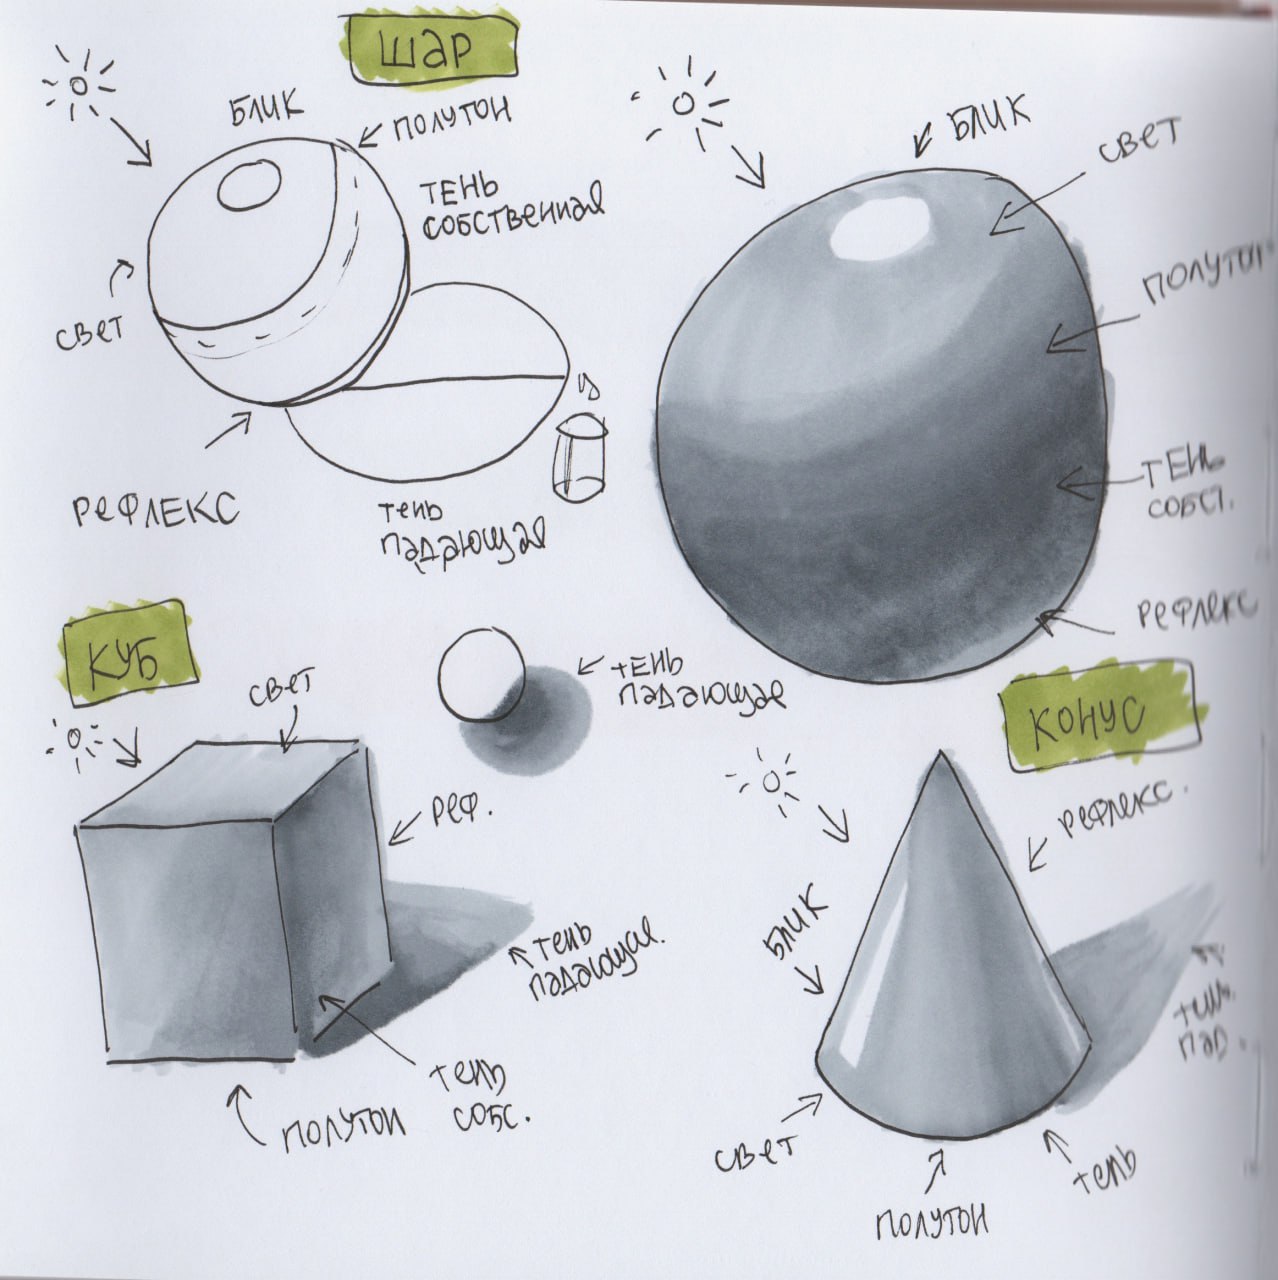 ШАР
БЛИК
ПОЛУТОН
ТЕНЬ
СОБСТВЕННАЯ
СВЕТ
РЕФЛЕКС
тень
падающая
БЛИК
СВЕТ
ПОЛУТОН
ТЕНЬ
СОБСТ.
РЕФЛЕКС
КУБ
СВЕТ
РЕФ.
тень
падающая.
тень
собс.
ПОЛУТОН
ТЕНЬ
падающая
КОНУС
РЕФЛЕКС.
БЛИК
СВЕТ
ПОЛУТОН
тень
тень.
пад.